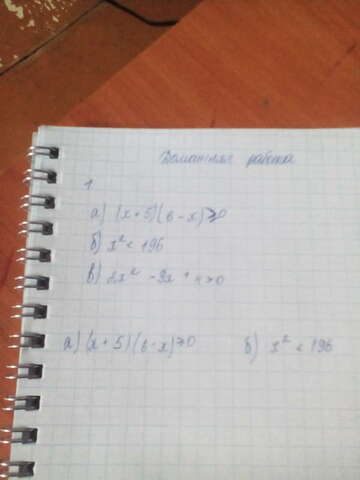 Домашняя работа
1.
а) (x+5)(6-x)≥0
б) x² < 196
в) 2x² - 9x + 4>0
а) (x+5)(6-x)≥0 б) x² < 196